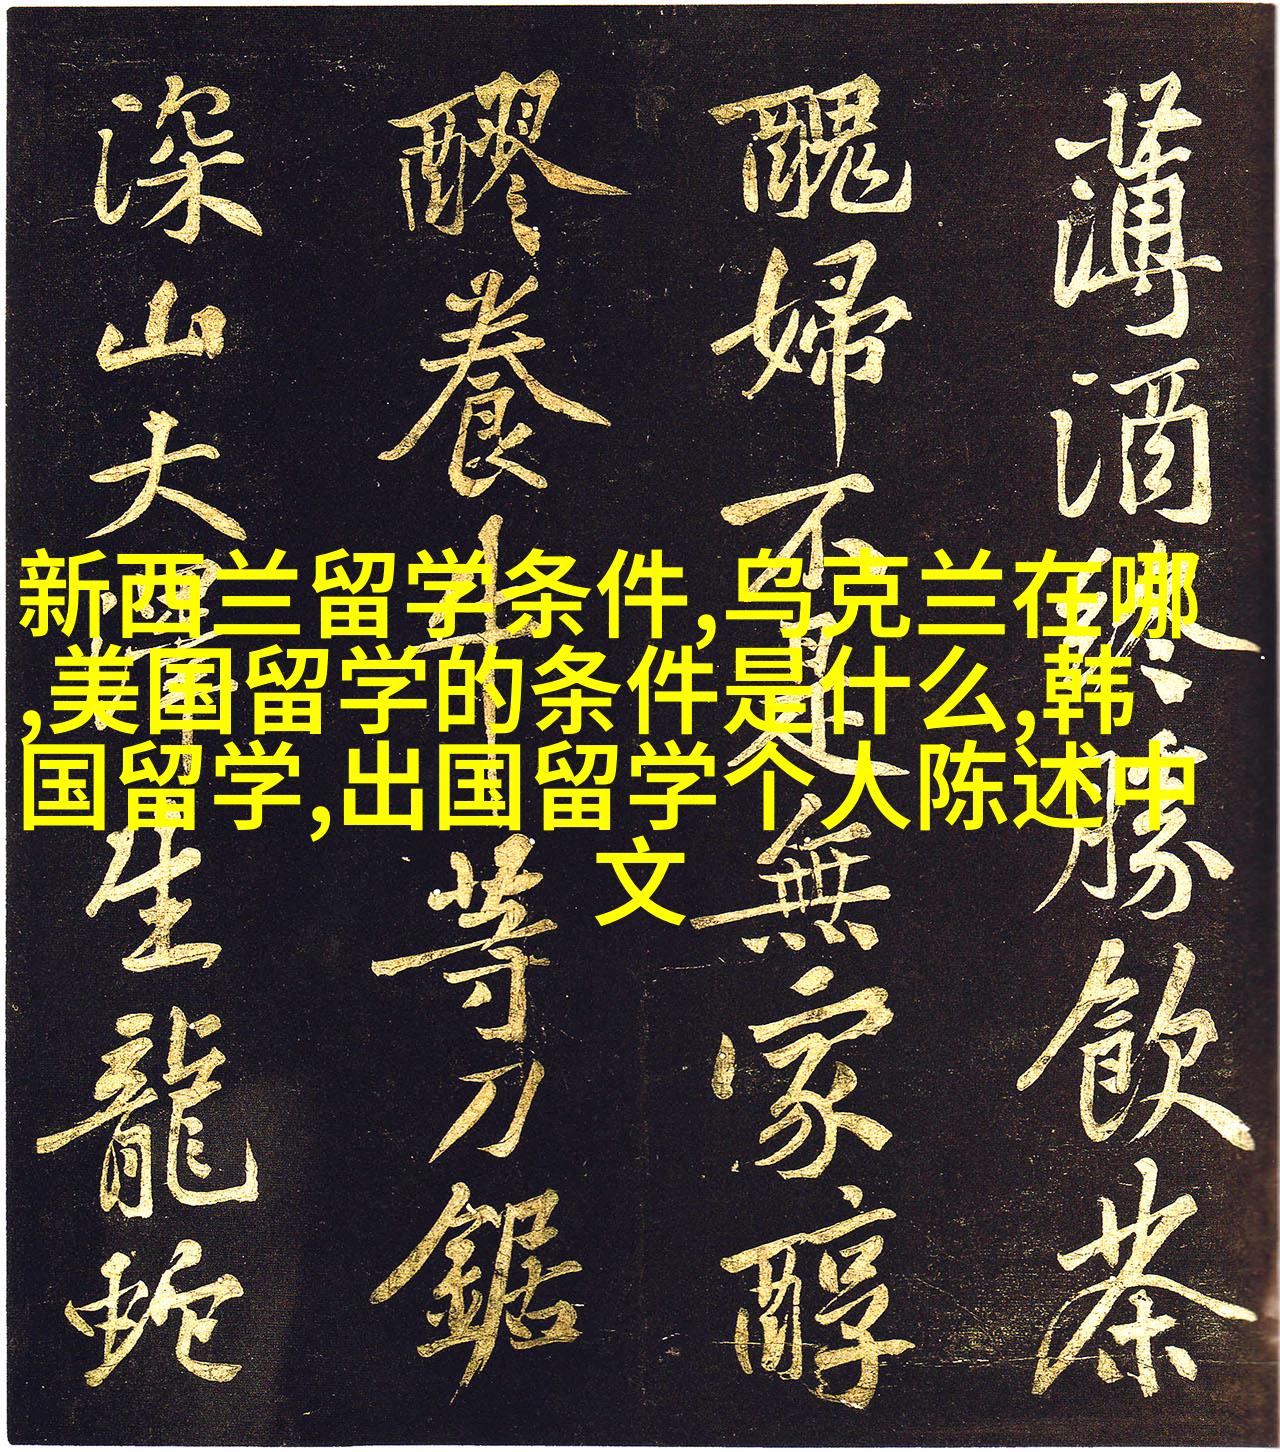 薄酒終勝飲茶
醜婦不是無家醇
醪養牛等刀鋸
深山大澤生龍蛇
新西兰留学条件,乌克兰在哪
,美国留学的条件是什么,韩
国留学,出国留学个人陈述中
文